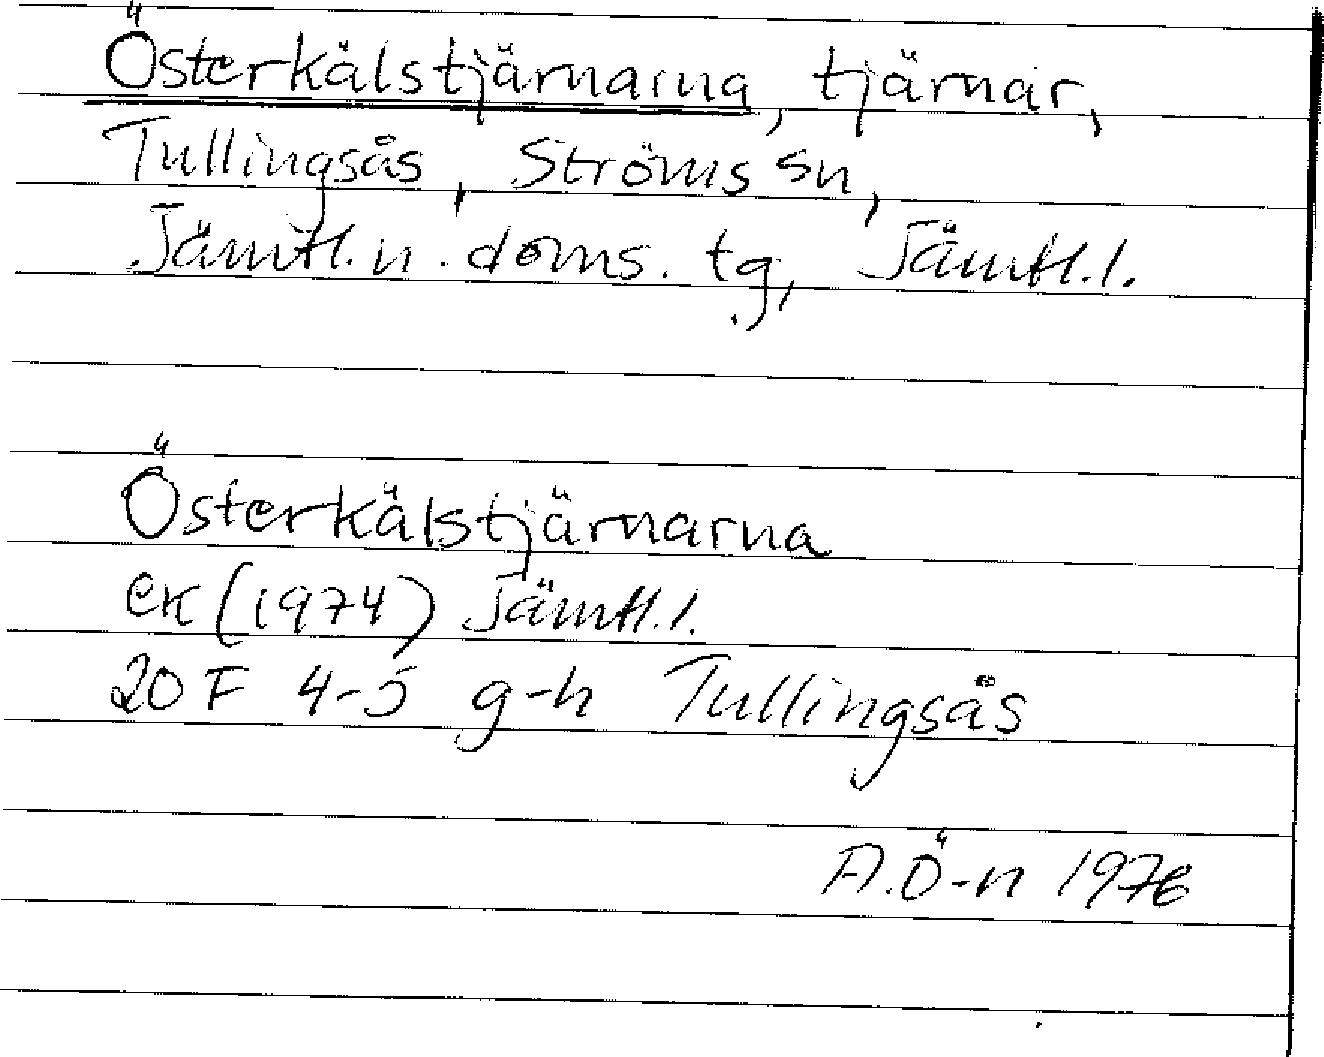 Österkälstjärnarna, tjärnar,
Tullingsås, Ströms sn,
Jämtl. n. doms. tg, Jämtl. l.
Österkälstjärnarna
ek (1974) Jämtl. l.
20 F 4-5 g-h Tullingsås
A. Ö-n 1976